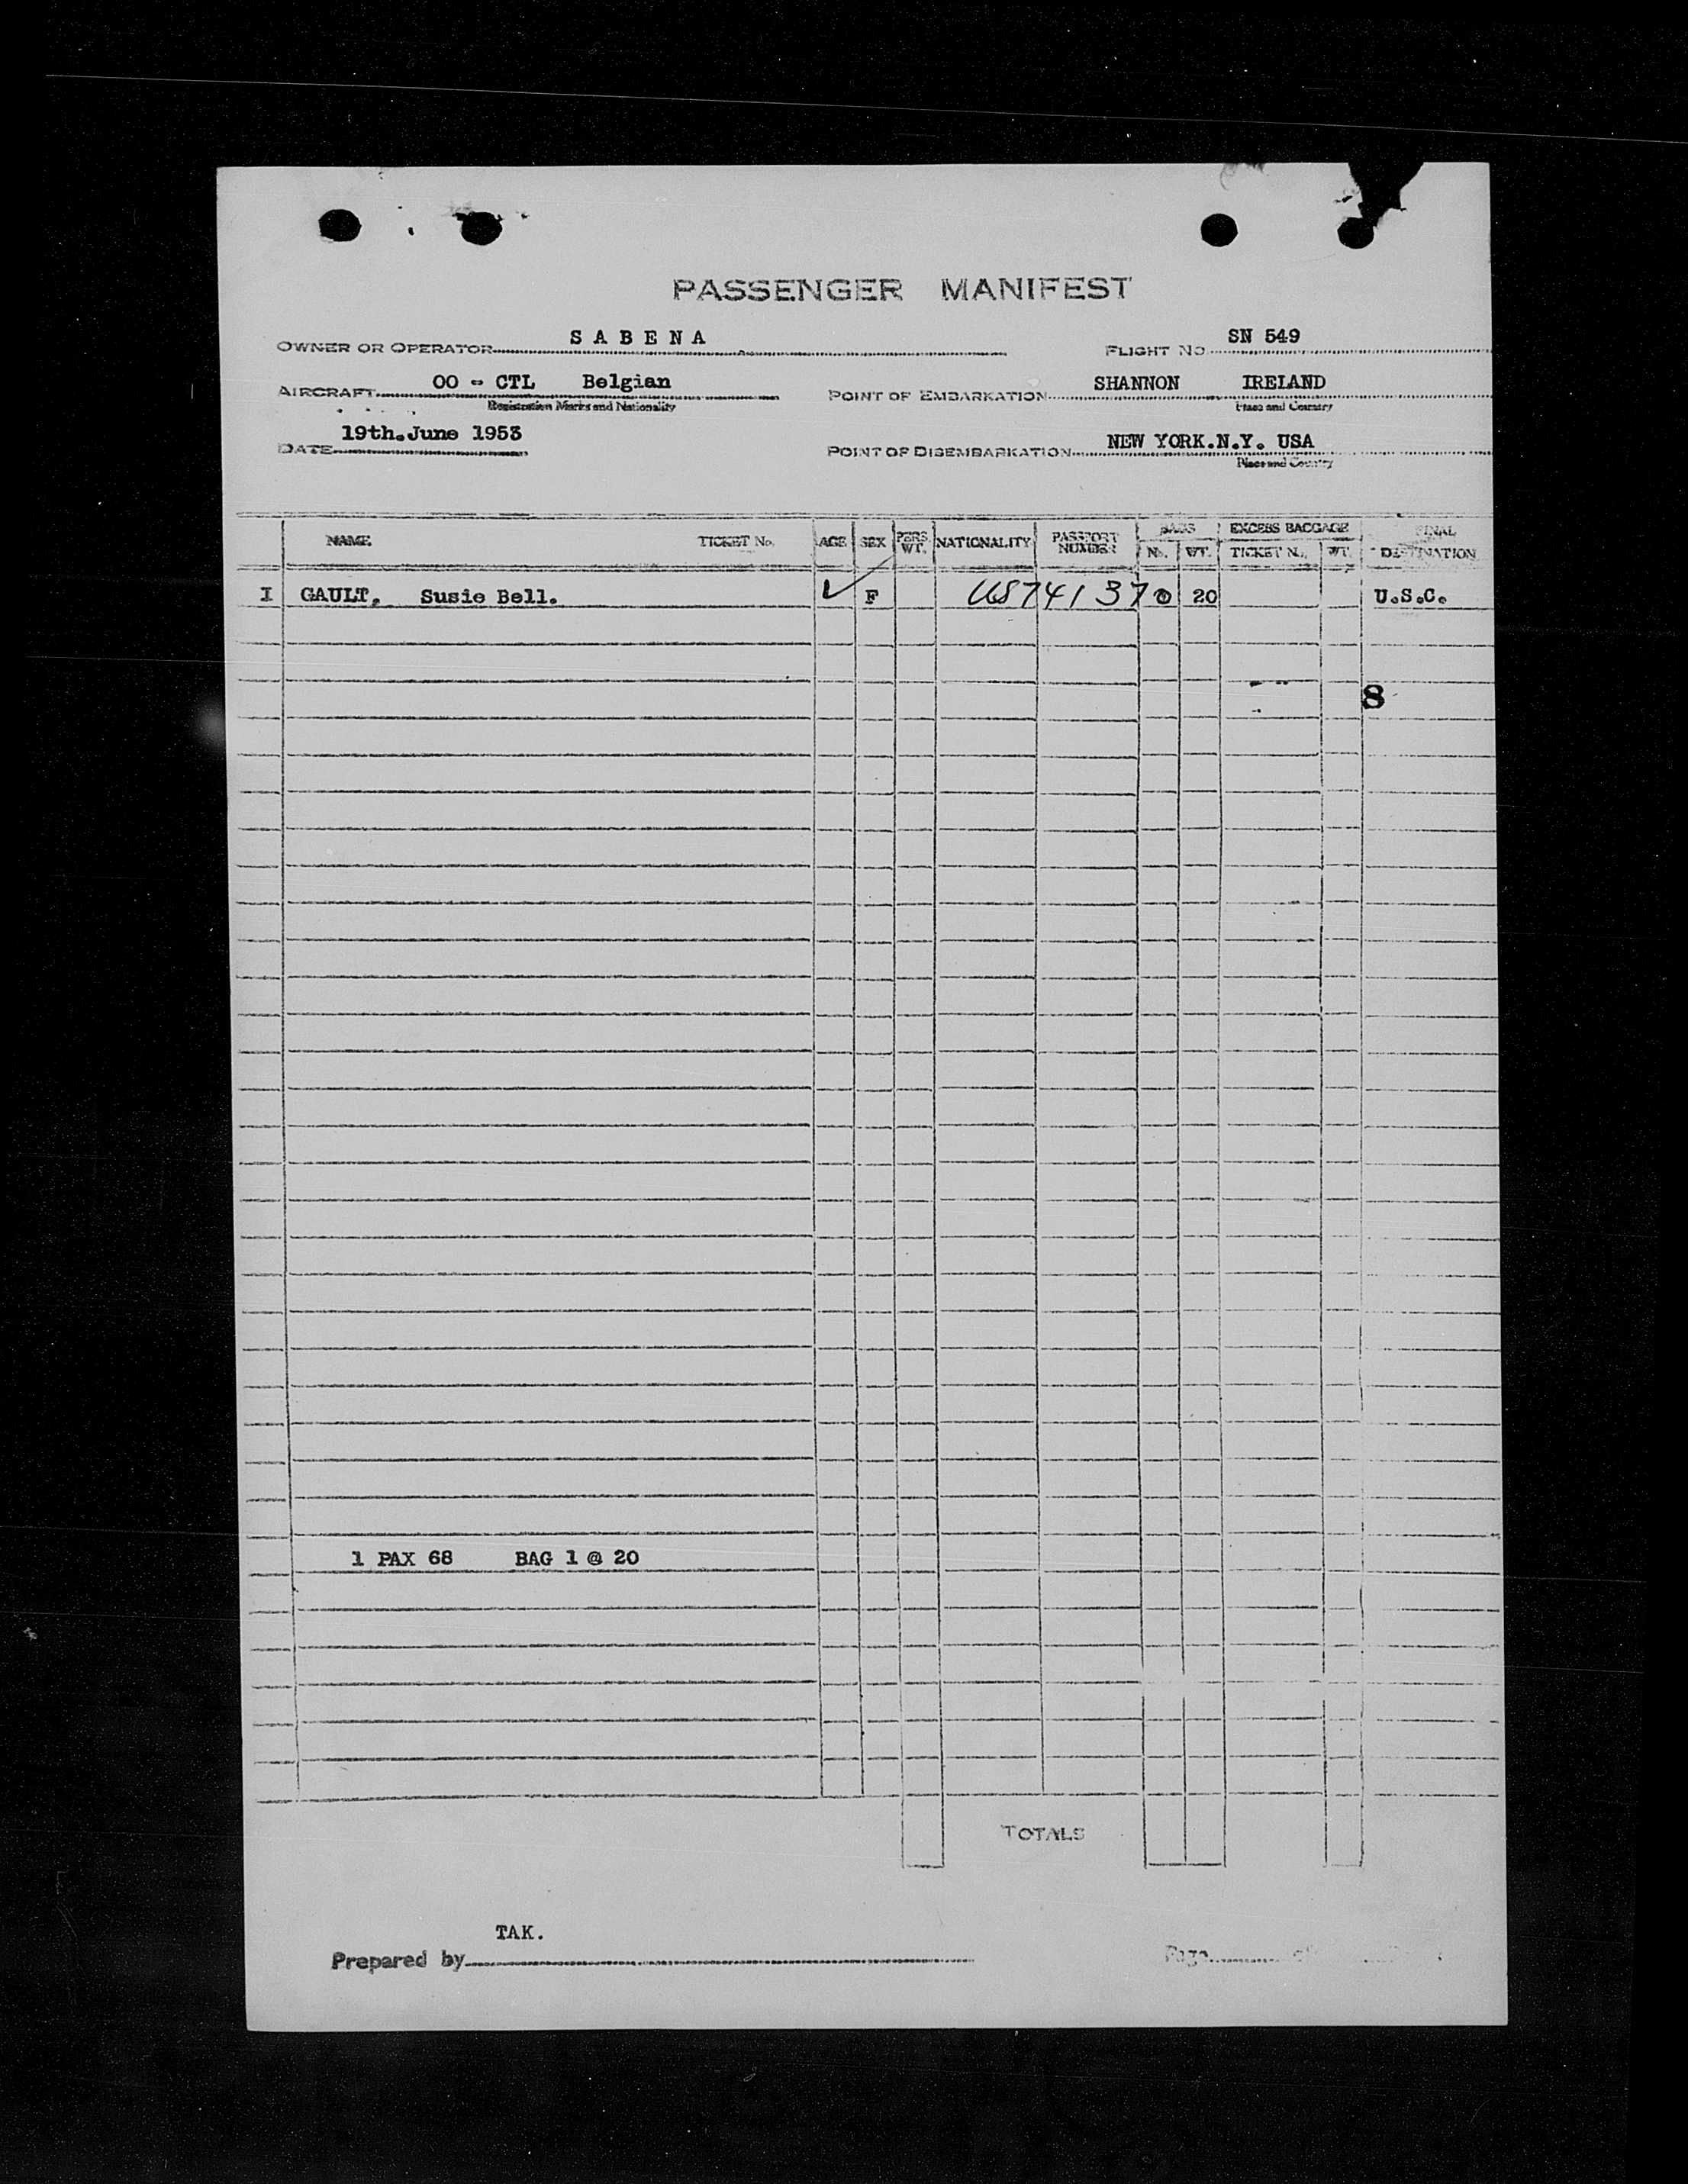 PASSENGER MANIFEST
OWNER OR OPERATOR SABENA FLIGHT No. SN 549
AIRCRAFT OO - CTL Belgian POINT OF EMBARKATION SHANNON IRELAND
Registration Marks and Nationality Place and Country
DATE 19th.June 1953 POINT OF DISEMBARKATION NEW YORK.N.Y. USA
Place and Country
NAME TICKET No. AGE SEX PERS. WT. NATIONALITY PASSPORT NUMBER BAGS No. WT. EXCESS BAGGAGE TICKET No. WT. FINAL DESTINATION
I GAULT, Susie Bell. F US 74137 20 U.S.C.
8
1 PAX 68 BAG 1 @ 20
TOTALS
TAK.
Prepared by
Page of